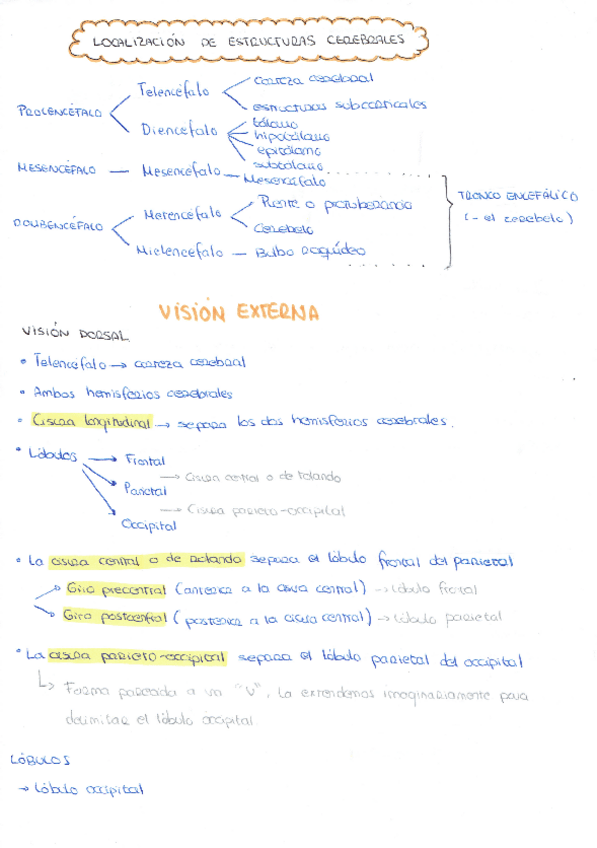 LOCALIZACIÓN DE ESTRUCTURAS CEREBRALES
Telencéfalo
corteza cerebral
estructuras subcorticales
PROSENCÉFALO
Diencéfalo
tálamo
hipotálamo
epitálamo
subtálamo
MESENCÉFALO — Mesencéfalo — Mesencéfalo
TRONCO ENCEFÁLICO
(- el cerebelo)
ROMBENCÉFALO
Metencéfalo
Puente o protuberancia
Cerebelo
Mielencéfalo — Bulbo Raquídeo
VISIÓN EXTERNA
VISIÓN DORSAL
• Telencéfalo → corteza cerebral
• Ambos hemisferios cerebrales
• Cisura longitudinal → separa los dos hemisferios cerebrales.
• Lóbulos → Frontal
→ Cisura central o de Rolando
Parietal
→ Cisura parieto-occipital
Occipital
• La cisura central o de Rolando separa el lóbulo frontal del parietal
Giro precentral (anterior a la cisura central) → lóbulo frontal
Giro postcentral (posterior a la cisura central) → Lóbulo parietal
• La cisura parieto-occipital separa el lóbulo parietal del occipital
↳ Forma parecida a un "V", la extendemos imaginariamente para
delimitar el lóbulo occipital.
LÓBULOS
→ Lóbulo occipital